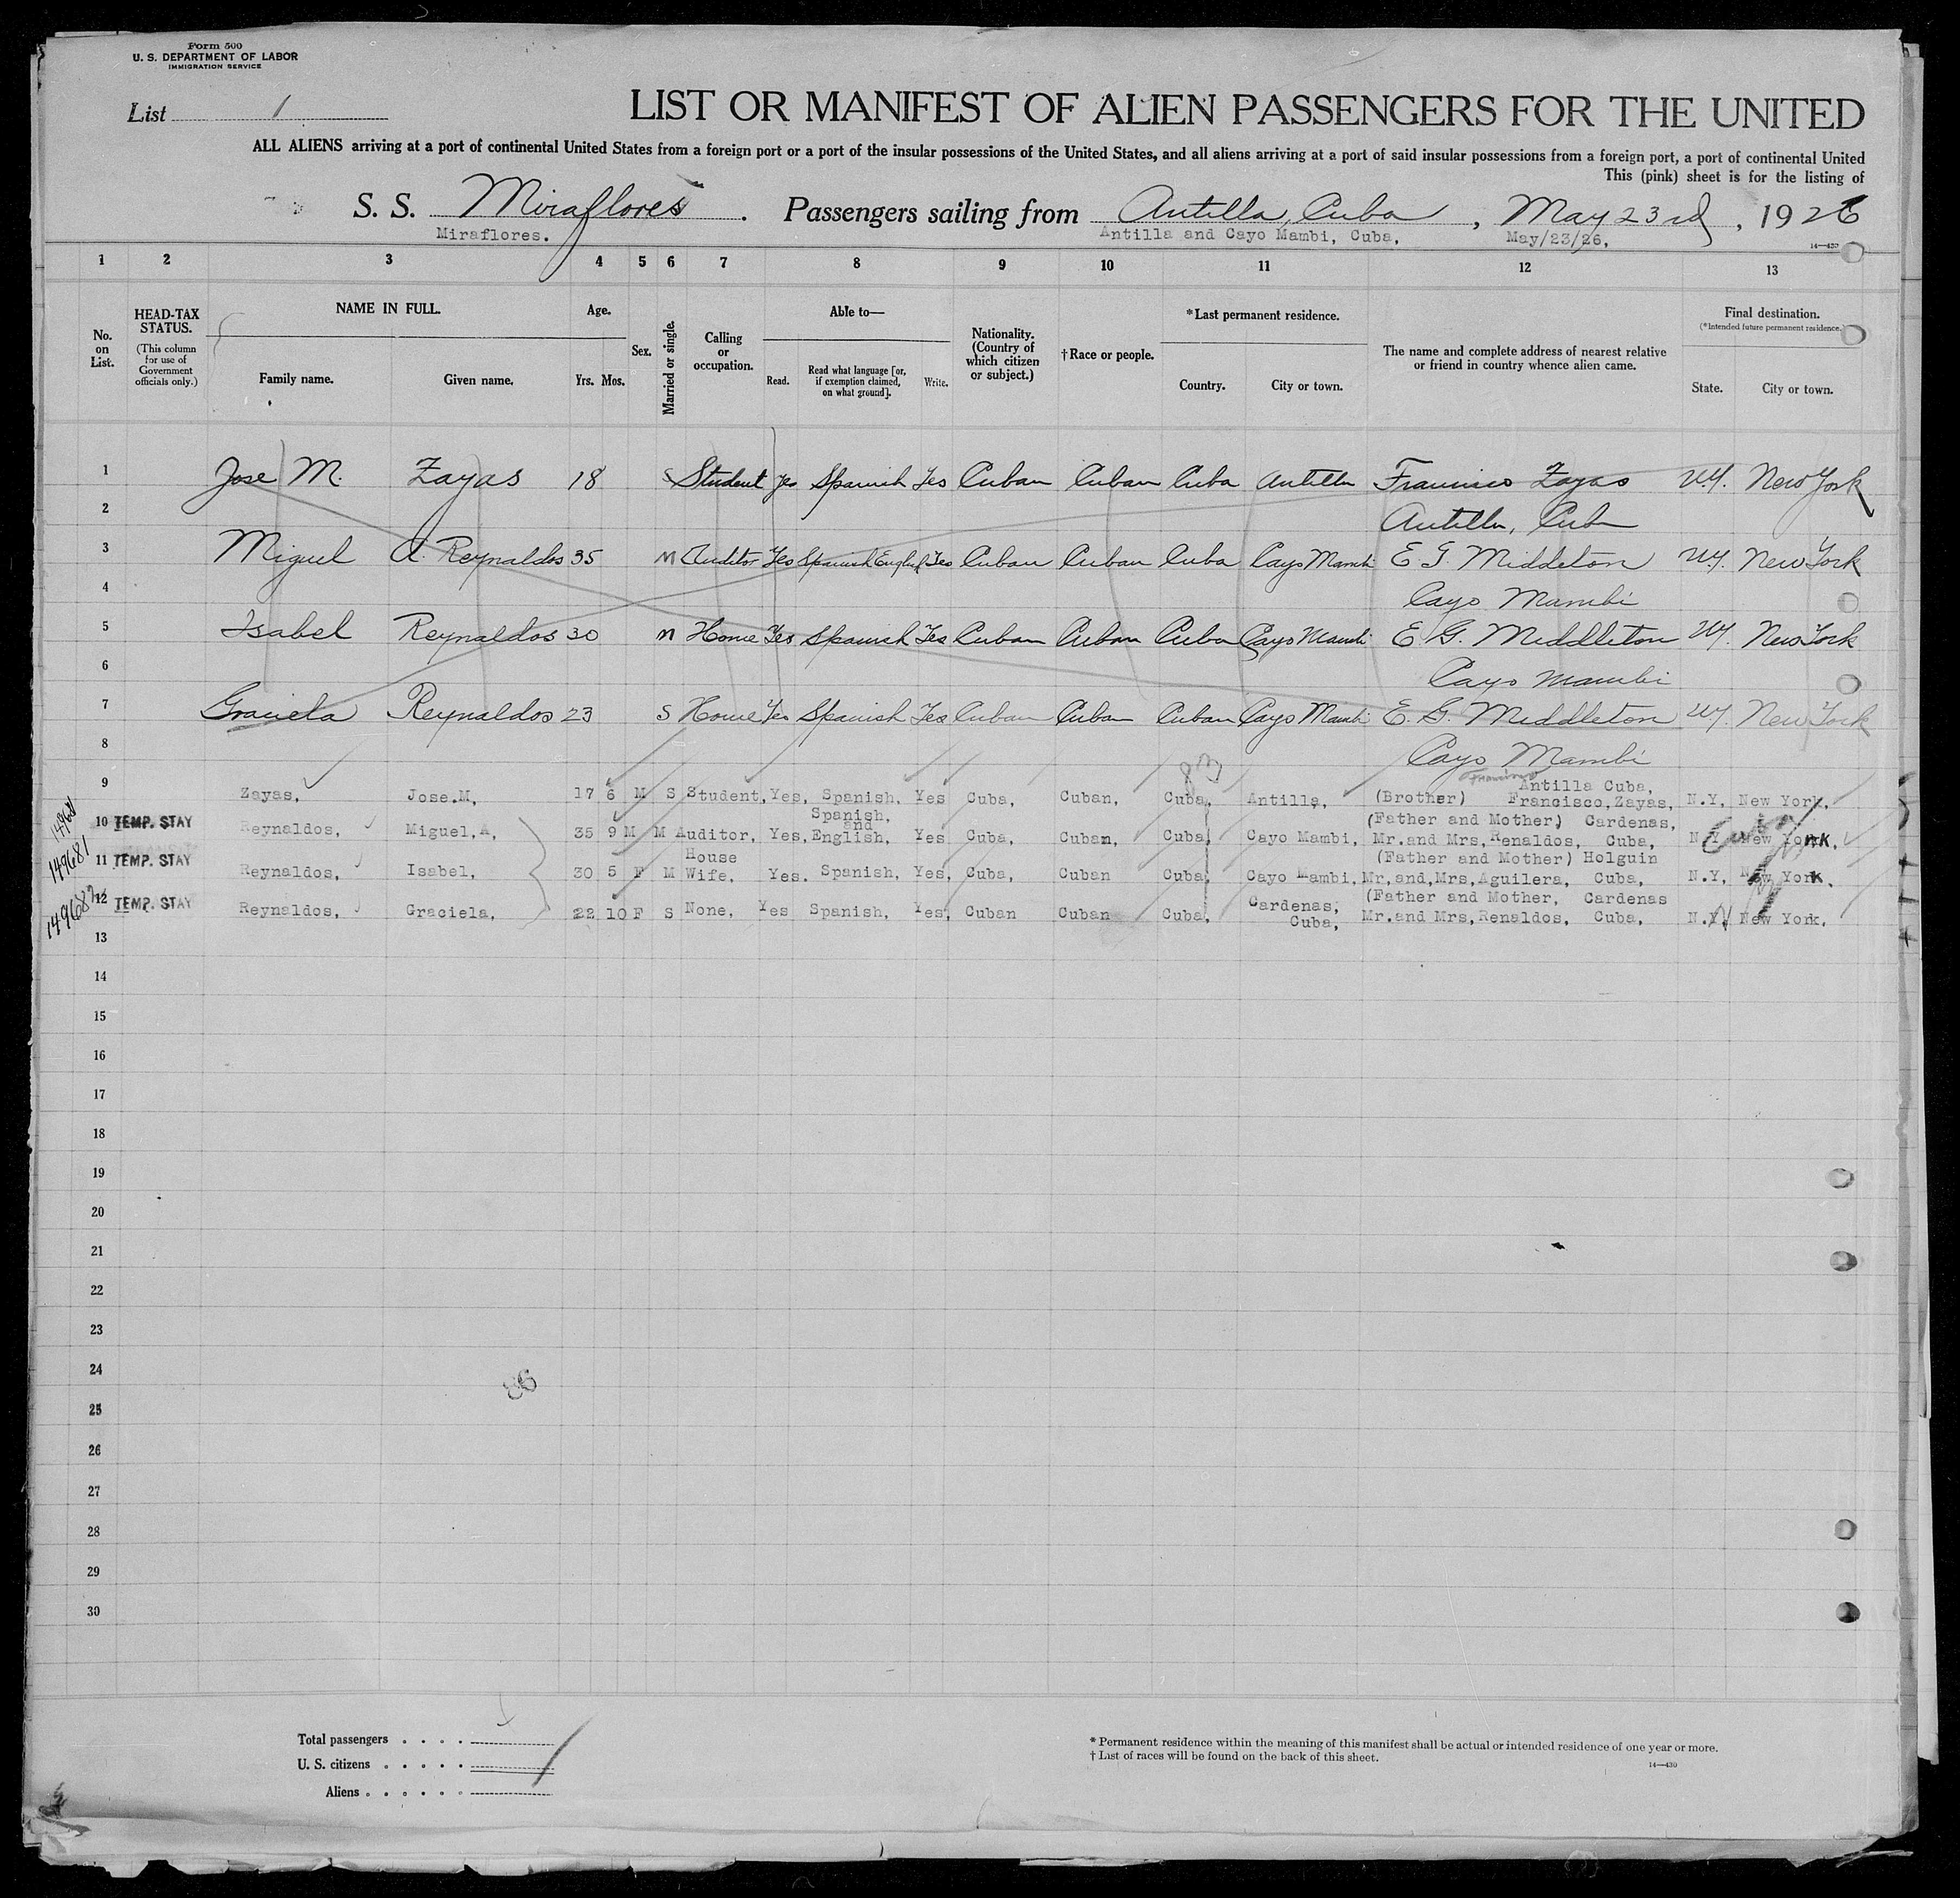 Form 500
U. S. DEPARTMENT OF LABOR
IMMIGRATION SERVICE
List 1
LIST OR MANIFEST OF ALIEN PASSENGERS FOR THE UNITED
ALL ALIENS arriving at a port of continental United States from a foreign port or a port of the insular possessions of the United States, and all aliens arriving at a port of said insular possessions from a foreign port, a port of continental United
This (pink) sheet is for the listing of
S. S. Miraflores. Passengers sailing from Antilla, Cuba, May 23rd, 1926
Miraflores. Antilla and Cayo Mambi, Cuba, May/23/26,
14—430
1 2 3 4 5 6 7 8 9 10 11 12 13
No. on List.
HEAD-TAX STATUS.
(This column for use of Government officials only.)
NAME IN FULL.
Family name. Given name.
Age.
Yrs. Mos.
Sex.
Married or single.
Calling or occupation.
Able to—
Read. Read what language [or, if exemption claimed, on what ground]. Write.
Nationality. (Country of which citizen or subject.)
†Race or people.
*Last permanent residence.
Country. City or town.
The name and complete address of nearest relative or friend in country whence alien came.
Final destination.
(*Intended future permanent residence.)
State. City or town.
1 Jose M. Zayas 18 S Student yes Spanish Yes Cuban Cuban Cuba Antilla Francisco Zayas N.Y. New York
2 Antilla, Cuba
3 Miguel A. Reynaldos 35 M Auditor Yes Spanish English Yes Cuban Cuban Cuba Cayo Mambi E G. Middleton N.Y. New York
4 Cayo Mambi
5 Isabel Reynaldos 30 M Home Yes Spanish Yes Cuban Cuban Cuba Cayo Mambi E. G. Middleton N.Y. New York
6 Cayo Mambi
7 Graciela Reynaldos 23 S Home Yes Spanish Yes Cuban Cuban Cuban Cayo Mambi E. G. Middleton N.Y. New York
8 Cayo Mambi
83
Francisco
Antilla Cuba,
9 Zayas, Jose.M, 17 6 M S Student, Yes, Spanish, Yes Cuba, Cuban, Cuba, Antilla, (Brother) Francisco, Zayas, N.Y, New York,
Spanish, and (Father and Mother) Cardenas,
10 TEMP. STAY Reynaldos, Miguel,A, 35 9 M M Auditor, Yes, English, Yes Cuba, Cuban, Cuba, Cayo Mambi, Mr.and Mrs,Renaldos, Cuba, N.Y, New York,
House (Father and Mother) Holguin
149681
11 TEMP. STAY Reynaldos, Isabel, 30 5 F M Wife, Yes. Spanish, Yes, Cuba, Cuban Cuba, Cayo Mambi, Mr,and,Mrs,Aguilera, Cuba, N.Y, New York,
Cardenas, (Father and Mother, Cardenas
149682
12 TEMP. STAY Reynaldos, Graciela, 22 10 F S None, Yes Spanish, Yes, Cuban Cuban Cuba, Cuba, Mr.and Mrs,Renaldos, Cuba, N.Y, New York,
13
14
15
16
17
18
19
20
21
22
23
24
86
25
26
27
28
29
30
Total passengers . . . .
U. S. citizens . . . . .
Aliens . . . . . .
* Permanent residence within the meaning of this manifest shall be actual or intended residence of one year or more.
† List of races will be found on the back of this sheet.
14—430